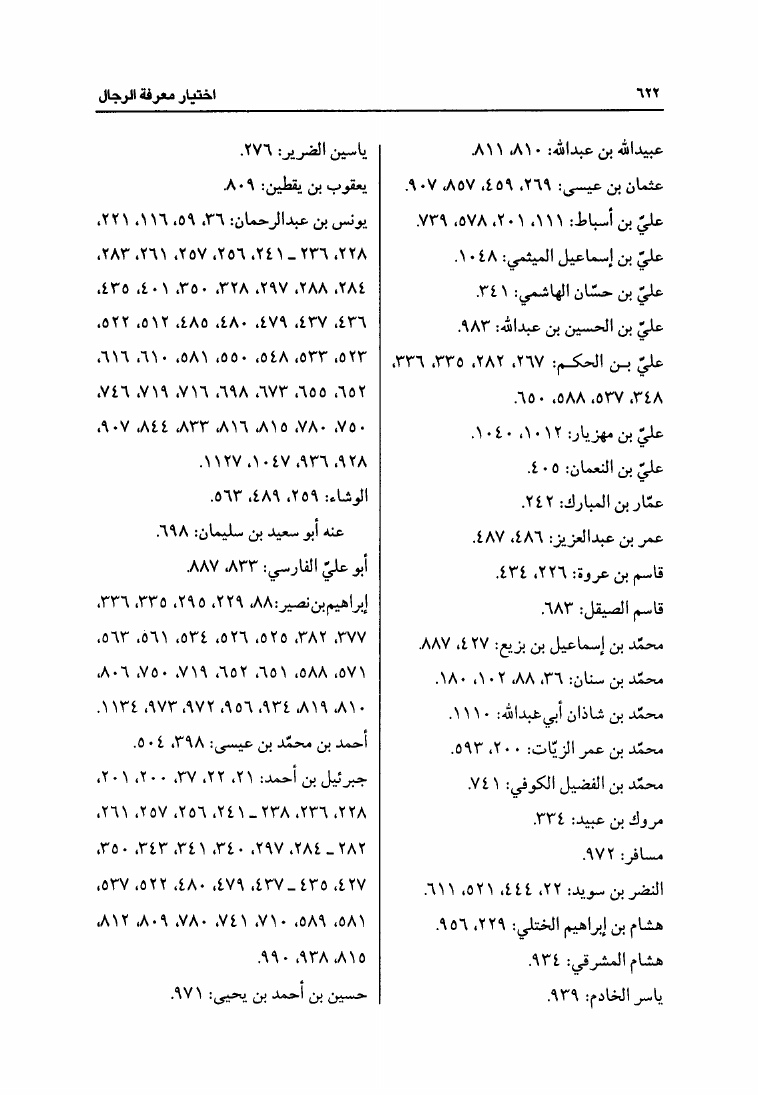 ٦٢٢
اختيار معرفة الرجال
عبيدالله بن عبدالله: ٨١٠، ٨١١.
عثمان بن عيسى: ٢٦٩، ٤٥٩، ٨٥٧، ٩٠٧.
عليّ بن أسباط: ١١١، ٢٠١، ٥٧٨، ٧٣٩.
عليّ بن إسماعيل الميثمي: ١٠٤٨.
عليّ بن حسّان الهاشمي: ٣٤١.
عليّ بن الحسين بن عبدالله: ٩٨٣.
عليّ بـن الحكـم: ٢٦٧، ٢٨٢، ٣٣٥، ٣٣٦،
٣٤٨، ٥٣٧، ٥٨٨، ٦٥٠.
عليّ بن مهزيار: ١٠١٢، ١٠٤٠.
عليّ بن النعمان: ٤٠٥.
عمّار بن المبارك: ٢٤٢.
عمر بن عبدالعزيز: ٤٨٦، ٤٨٧.
قاسم بن عروة: ٢٢٦، ٤٣٤.
قاسم الصيقل: ٦٨٣.
محمّد بن إسماعيل بن بزيع: ٤٢٧، ٨٨٧.
محمّد بن سنان: ٣٦، ٨٨، ١٠٢، ١٨٠.
محمّد بن شاذان أبي‌عبدالله: ١١١٠.
محمّد بن عمر الزيّات: ٢٠٠، ٥٩٣.
محمّد بن الفضيل الكوفي: ٧٤١.
مروك بن عبيد: ٣٣٤.
مسافر: ٩٧٢.
النضر بن سويد: ٢٢، ٤٤٤، ٥٢١، ٦١١.
هشام بن إبراهيم الختلي: ٢٢٩، ٩٥٦.
هشام المشرقي: ٩٣٤.
ياسر الخادم: ٩٣٩.
ياسين الضرير: ٢٧٦.
يعقوب بن يقطين: ٨٠٩.
يونس بن عبدالرحمان: ٣٦، ٥٩، ١١٦، ٢٢١،
٢٢٨، ٢٣٦ ـ ٢٤١، ٢٥٦، ٢٥٧، ٢٦١، ٢٨٣،
٢٨٤، ٢٨٨، ٢٩٧، ٣٢٨، ٣٥٠، ٤٠١، ٤٣٥،
٤٣٦، ٤٣٧، ٤٧٩، ٤٨٠، ٤٨٥، ٥١٢، ٥٢٢،
٥٢٣، ٥٣٣، ٥٤٨، ٥٥٠، ٥٨١، ٦١٠، ٦١٦،
٦٥٢، ٦٥٥، ٦٧٣، ٦٩٨، ٧١٦، ٧١٩، ٧٤٦،
٧٥٠، ٧٨٠، ٨١٥، ٨١٦، ٨٣٣، ٨٤٤، ٩٠٧،
٩٢٨، ٩٣٦، ١٠٤٧، ١١٢٧.
الوشاء: ٢٥٩، ٤٨٩، ٥٦٣.
عنه أبو سعيد بن سليمان: ٦٩٨.
أبو عليّ الفارسي: ٨٣٣، ٨٨٧.
إبراهيم‌بن‌نصير: ٨٨، ٢٢٩، ٢٩٥، ٣٣٥، ٣٣٦،
٣٧٧، ٣٨٢، ٥٢٥، ٥٢٦، ٥٣٤، ٥٦١، ٥٦٣،
٥٧١، ٥٨٨، ٦٥١، ٦٥٢، ٧١٩، ٧٥٠، ٨٠٦،
٨١٠، ٨١٩، ٩٣٤، ٩٥٦، ٩٧٢، ٩٧٣، ١١٣٤.
أحمد بن محمّد بن عيسى: ٣٩٨، ٥٠٤.
جبرئيل بن أحمد: ٢١، ٢٢، ٣٧، ٢٠٠، ٢٠١،
٢٢٨، ٢٣٦، ٢٣٨ ـ ٢٤١، ٢٥٦، ٢٥٧، ٢٦١،
٢٨٢ ـ ٢٨٤، ٢٩٧، ٣٤٠، ٣٤١، ٣٤٣، ٣٥٠،
٤٢٧، ٤٣٥ ـ ٤٣٧، ٤٧٩، ٤٨٠، ٥٢٢، ٥٣٧،
٥٨١، ٥٨٩، ٧١٠، ٧٤١، ٧٨٠، ٨٠٩، ٨١٢،
٨١٥، ٩٣٨، ٩٩٠.
حسين بن أحمد بن يحيى: ٩٧١.